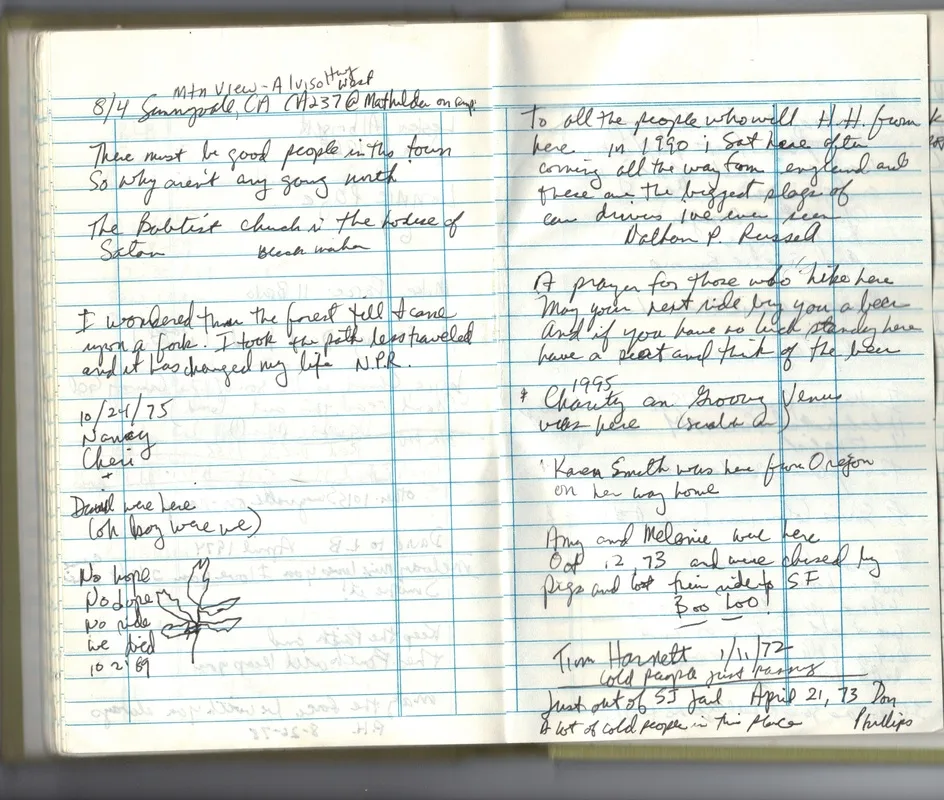 Mtn View - Alviso Hwy West
8/4 Sunnyvale, CA CA237 @ Mathilda on ramp
There must be good people in this town
So why aren't any going north
The Babtist church is the house of
Satan
I wondered thru the forest till I came
upon a fork. I took the path less traveled
and it has changed my life N.P.R.
10/24/75
Nancy
Cheri
+
David were here
(oh boy were we)
No hope
No dope
No ride
we died
10 21 89
To all the people who will H.H. from
here in 1990 i sat here often
coming all the way from england and
these are the biggest slags of
car drivers I've ever seen
Dalton P. Russell
A prayer for those who hike here
May your next ride buy you a beer
And if you have no luck standing here
have a seat and think of the beer
1995
* Charity an Groovy Venus
was here
Karen Smith was here from Oregon
on her way home
Amy and Melonie were here
Oct 12 73 and were chased by
pigs and lost their ride to SF
Boo Loo!
Tim Harnett 1/11/72
cold people just passing
Just out of SJ Jail April 21, 73 Don
Phillips
A lot of cold people in this place